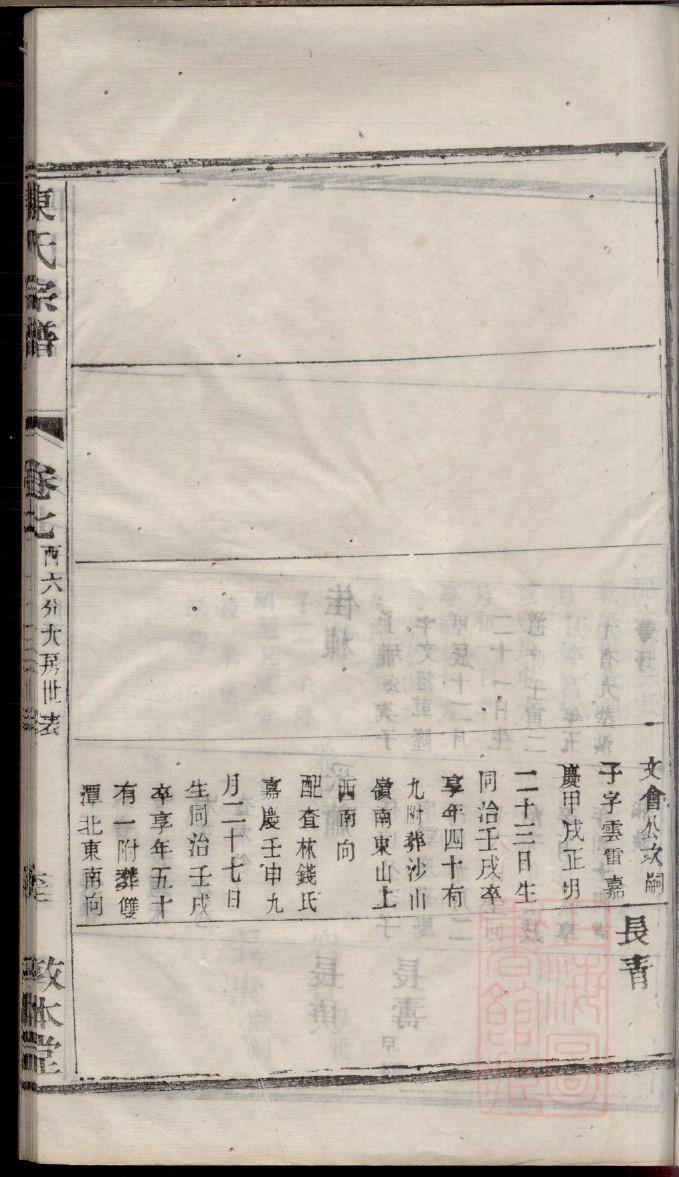 文會公次嗣
子字雲雷嘉
慶甲戌正明
二十三日生
同治壬戌卒
享年四十有
九附葬沙山
嶺南東山上
西南向
配查林錢氏
嘉慶壬申九
月二十七日
生同治壬戌
卒享年五十
有一附葬雙
潭北東南向
長青
陳氏宗譜
卷七
西六分大房世表
敦本堂